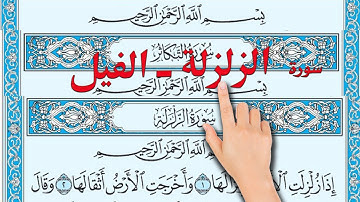 بِسْمِ اللَّهِ الرَّحْمَٰنِ الرَّحِيمِ
سُورَةُ التَّكَاثُرِ
سورة الزلزلة - الفيل
بِسْمِ اللَّهِ الرَّحْمَٰنِ الرَّحِيمِ
سُورَةُ الزَّلْزَلَةِ
بِسْمِ اللَّهِ الرَّحْمَٰنِ الرَّحِيمِ
إِذَا زُلْزِلَتِ لَهَا ١ وَأَخْرَجَتِ الْأَرْضُ أَثْقَالَهَا ٢ وَقَالَ